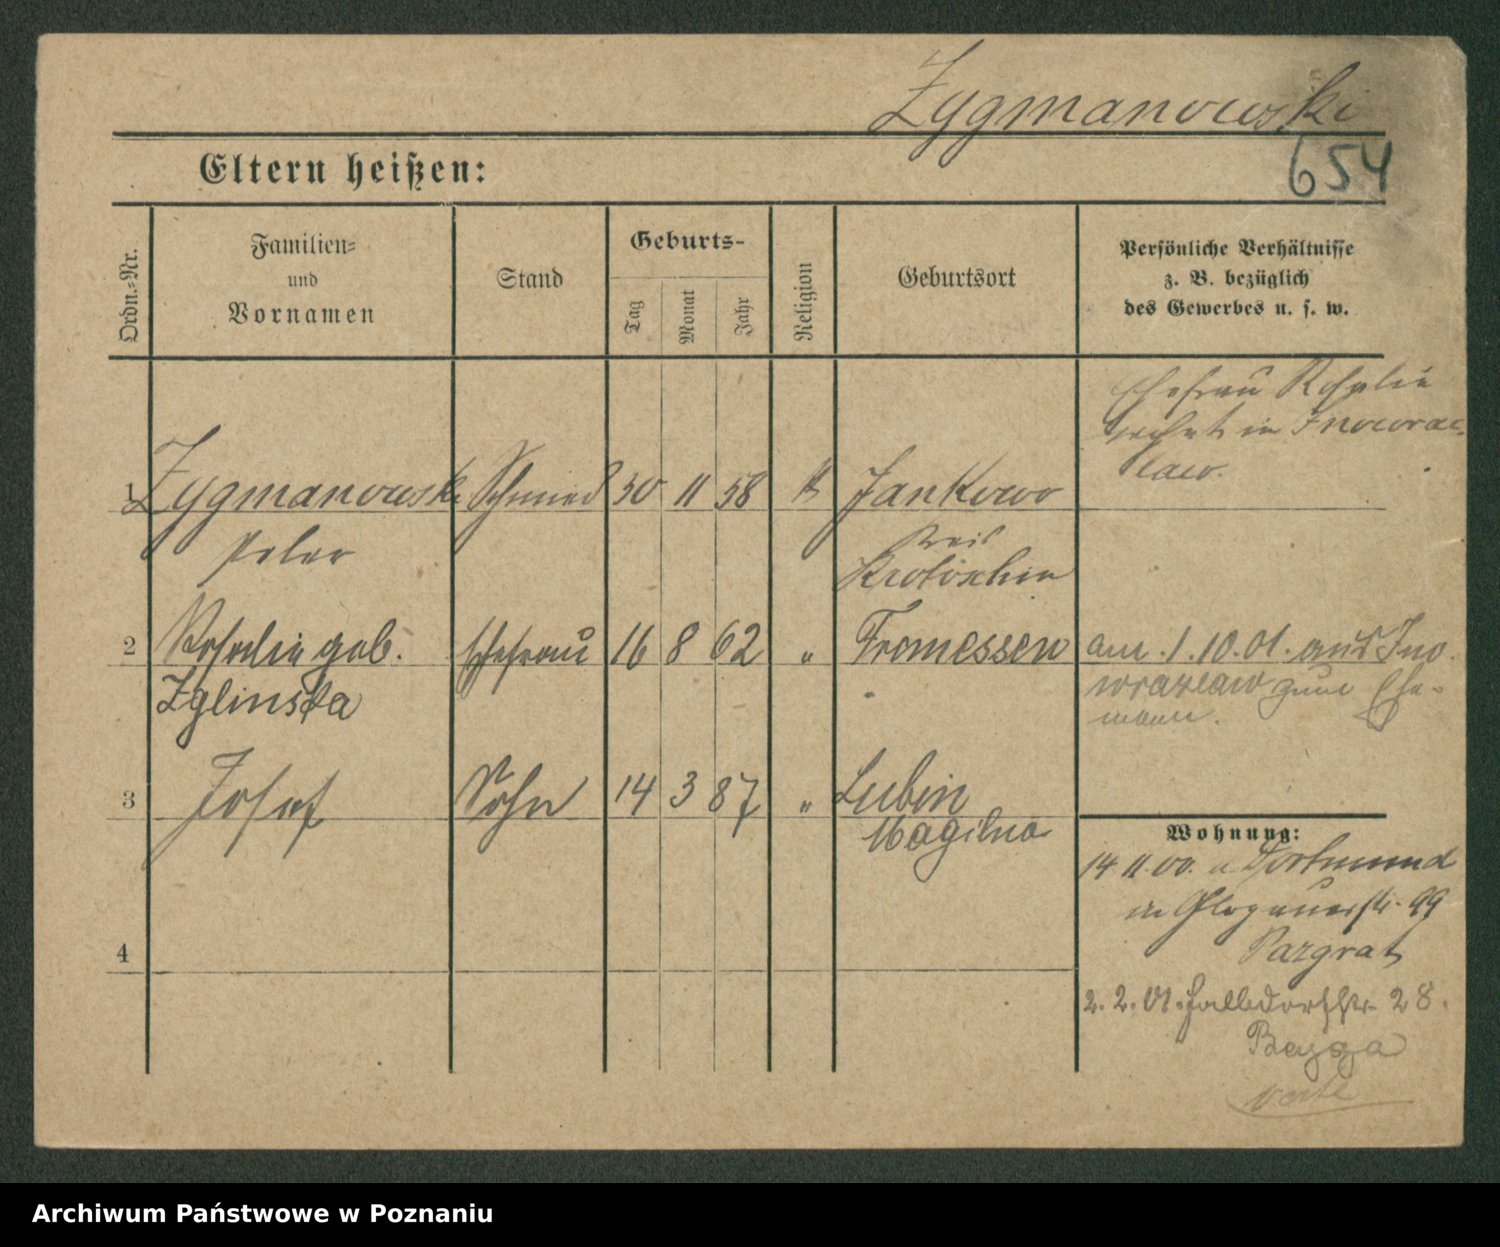 Zygmanowski
654
Eltern heißen:
Ordn.-Nr.
Familien-
und
Vornamen
Stand
Geburts-
Tag
Monat
Jahr
Religion
Geburtsort
Persönliche Verhältnisse
z. B. bezüglich
des Gewerbes u. s. w.
Ehefrau Rosalie
wohnt in Inowraz-
law.
1 Zygmanowski Schmied 30 11 58 k Jankowo
Peter
Kreis
Krotoschin
2 Rosalie geb. Ehefrau 16 8 62 " Tremessen am 1.10.01. aus Ino
Zglinska
wrazlaw zum Ehe-
mann.
3 Josef Sohn 14 3 87 " Lubin
Mogilno
Wohnung:
14 11.00. v Dortmund
in Glogauerstr. 99
4
2. 2. 01. Halldorfstr. 28.
verte
Archiwum Państwowe w Poznaniu